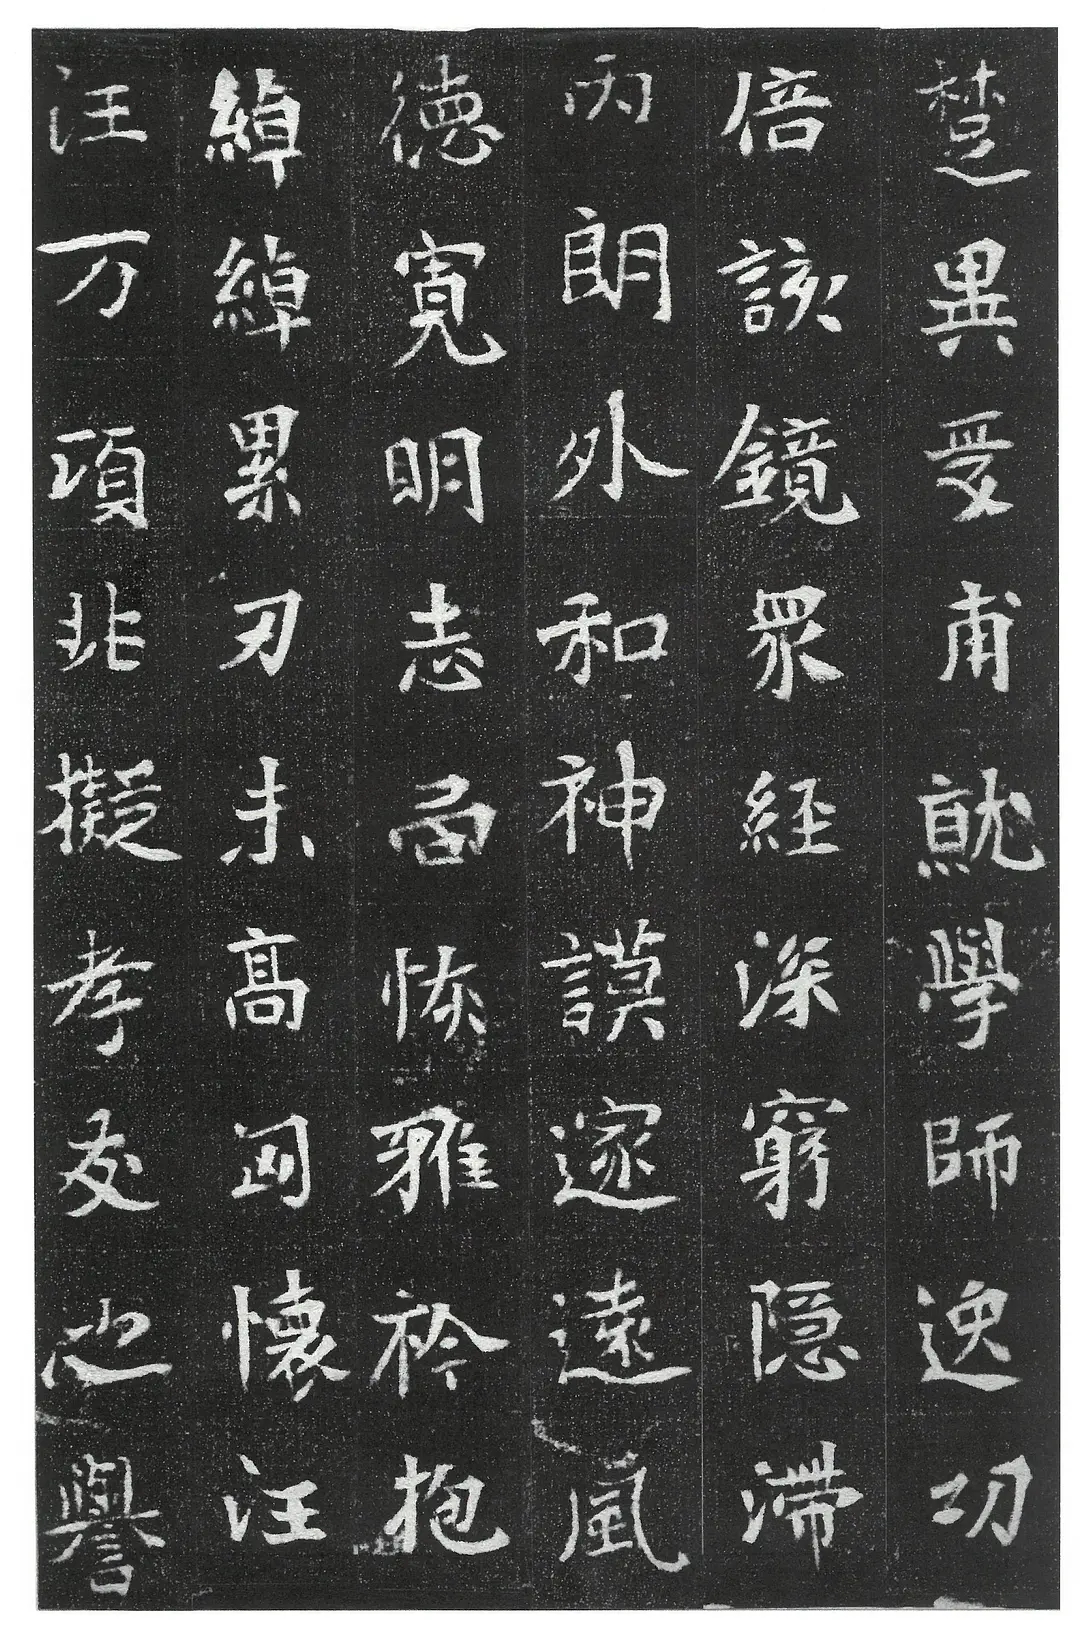 楚異受甫就學師逸功
倍該鏡眾經深窮隱滯
內朗外和神謨邃遠風
德寬明志局恢雅衿抱
綽綽累刃未高囧懷汪
汪万頃非擬孝友也譽